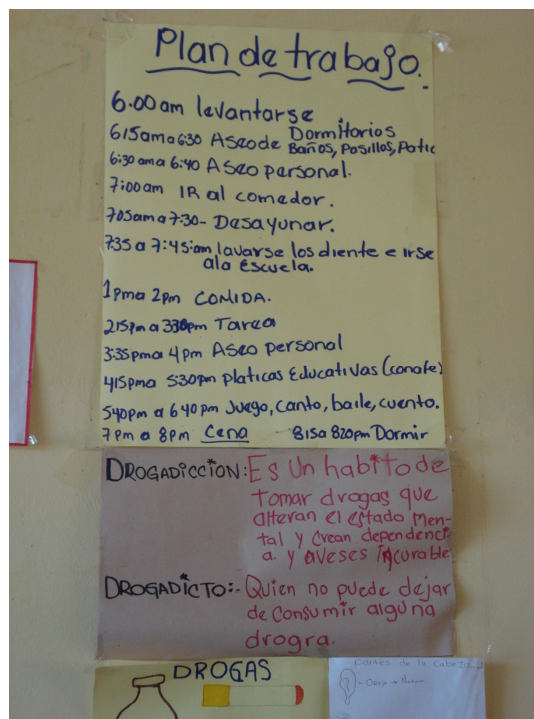 Plan de trabajo.
6:00am levantarse
615am a 6:30 Aseo de Dormitorios
Baños, Pasillos, Patio
6:30 am a 6:40 Aseo personal.
7:00am IR al comedor.
705am a 7:30- Desayunar.
7:35 a 7:45:am lavarse los diente e irse
ala Escuela.
1pm a 2pm COMIDA.
215pm a 330pm Tarea
3:35pm a 4pm Aseo personal
415pm a 5:30pm platicas Educativas (conafe)
540pm a 640pm Juego, canto, baile, cuento.
7pm a 8pm Cena 815a 820pm Dormir
DROGADICCION: Es Un habito de
tomar drogas que
alteran el estado Men-
tal y crean dependenci
a. y aveses incurable
DROGADICTO:- Quien no puede dejar
de consumir alguna
drogra.
DROGAS
partes de la Cabeza